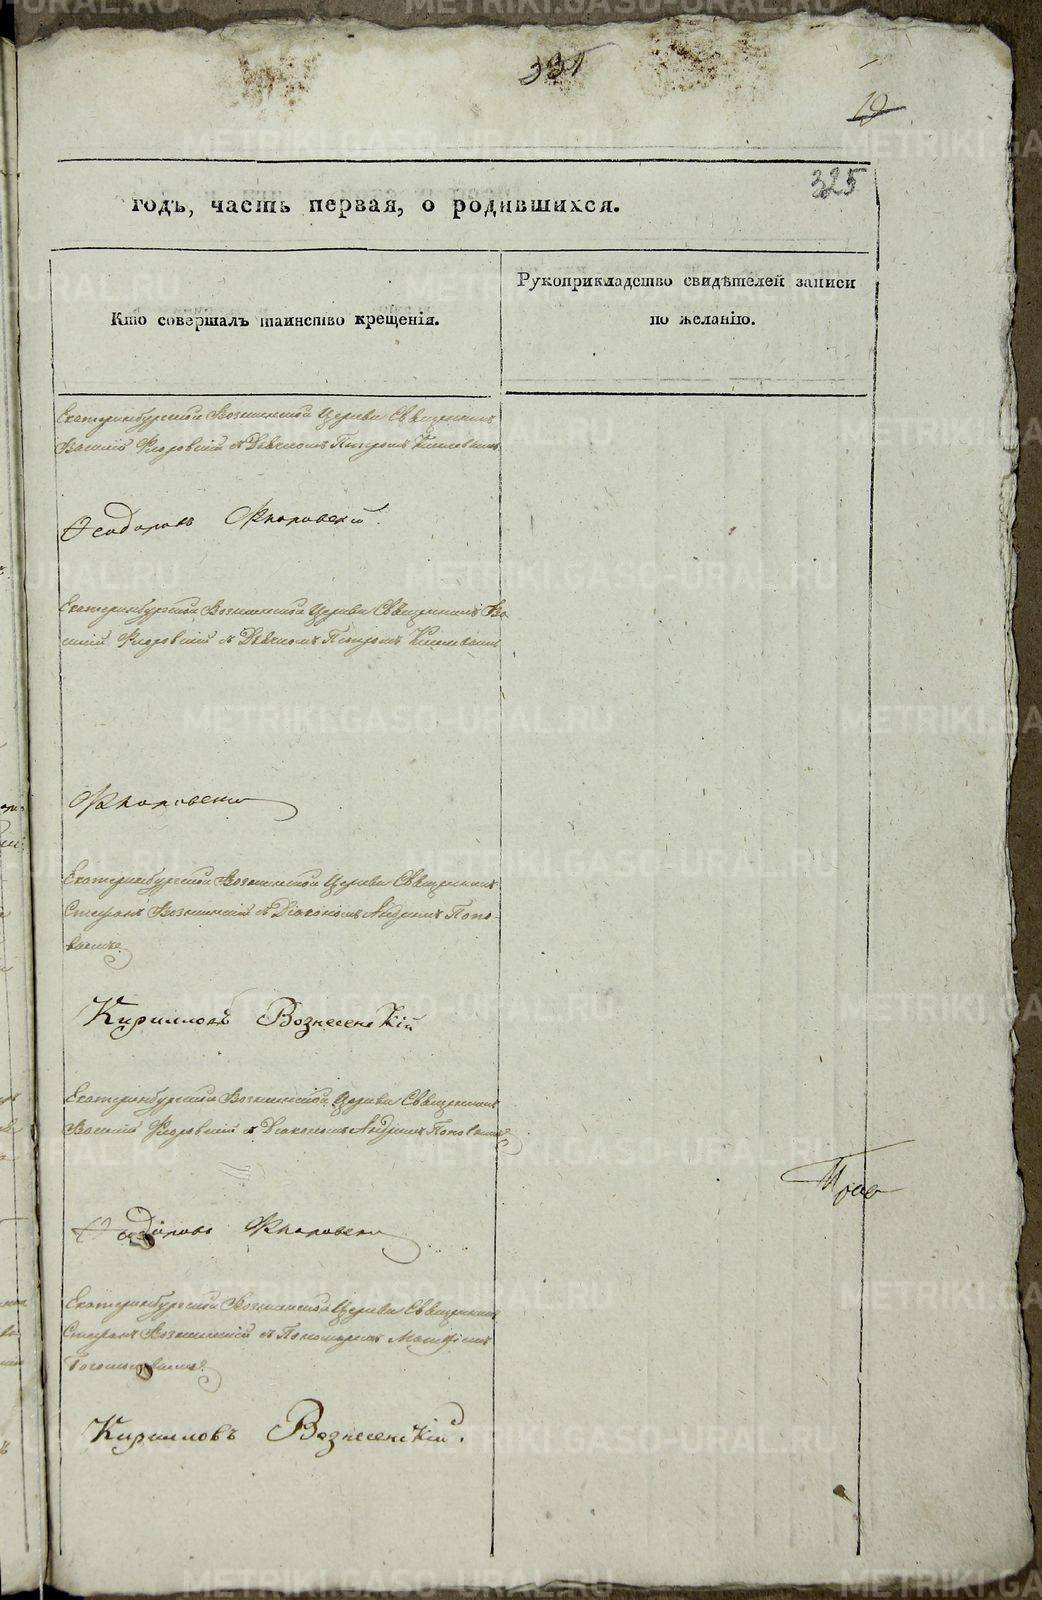 331
19
325
годъ, часть первая, о родившихся.
Кто совершалъ таинство крещенія.
Рукоприкладство свидѣтелей записи
по желанію.
Екатеринбургской Вознесенской Церкви Священникъ
Василій Флоровскій съ Дьячкомъ Петромъ
Ѳеодоровъ Флоровскій.
Екатеринбургской Вознесенской Церкви Священникъ Ва
силій Флоровскій съ Дьячкомъ Петромъ
Флоровскій
Екатеринбургской Вознесенской Церкви Священникъ
Стефанъ Вознесенскій съ Діакономъ Андреемъ Попо-
вымъ
Кирилловъ Вознесенскій
Екатеринбургской Вознесенской Церкви Священникъ
Василій Флоровскій съ Діакономъ Андреемъ Поповымъ
Ѳеодоровъ Флоровскій
Екатеринбургской Вознесенской Церкви Священникъ
Стефанъ Вознесенскій съ Пономаремъ
Кирилловъ Вознесенскій.
METRIKI.GASO-URAL.RU